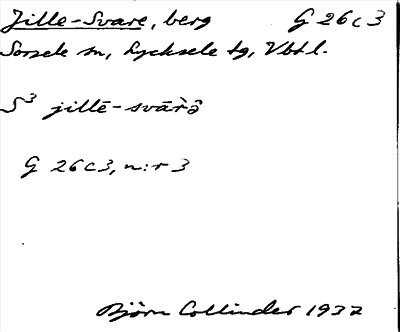 Jille-Svare, berg G 26 c 3
Sorsele sn, Lycksele tg, Vbtl.
S³ jillē-svārə̂
G 26 c 3, n:r 3
Björn Collinder 1937